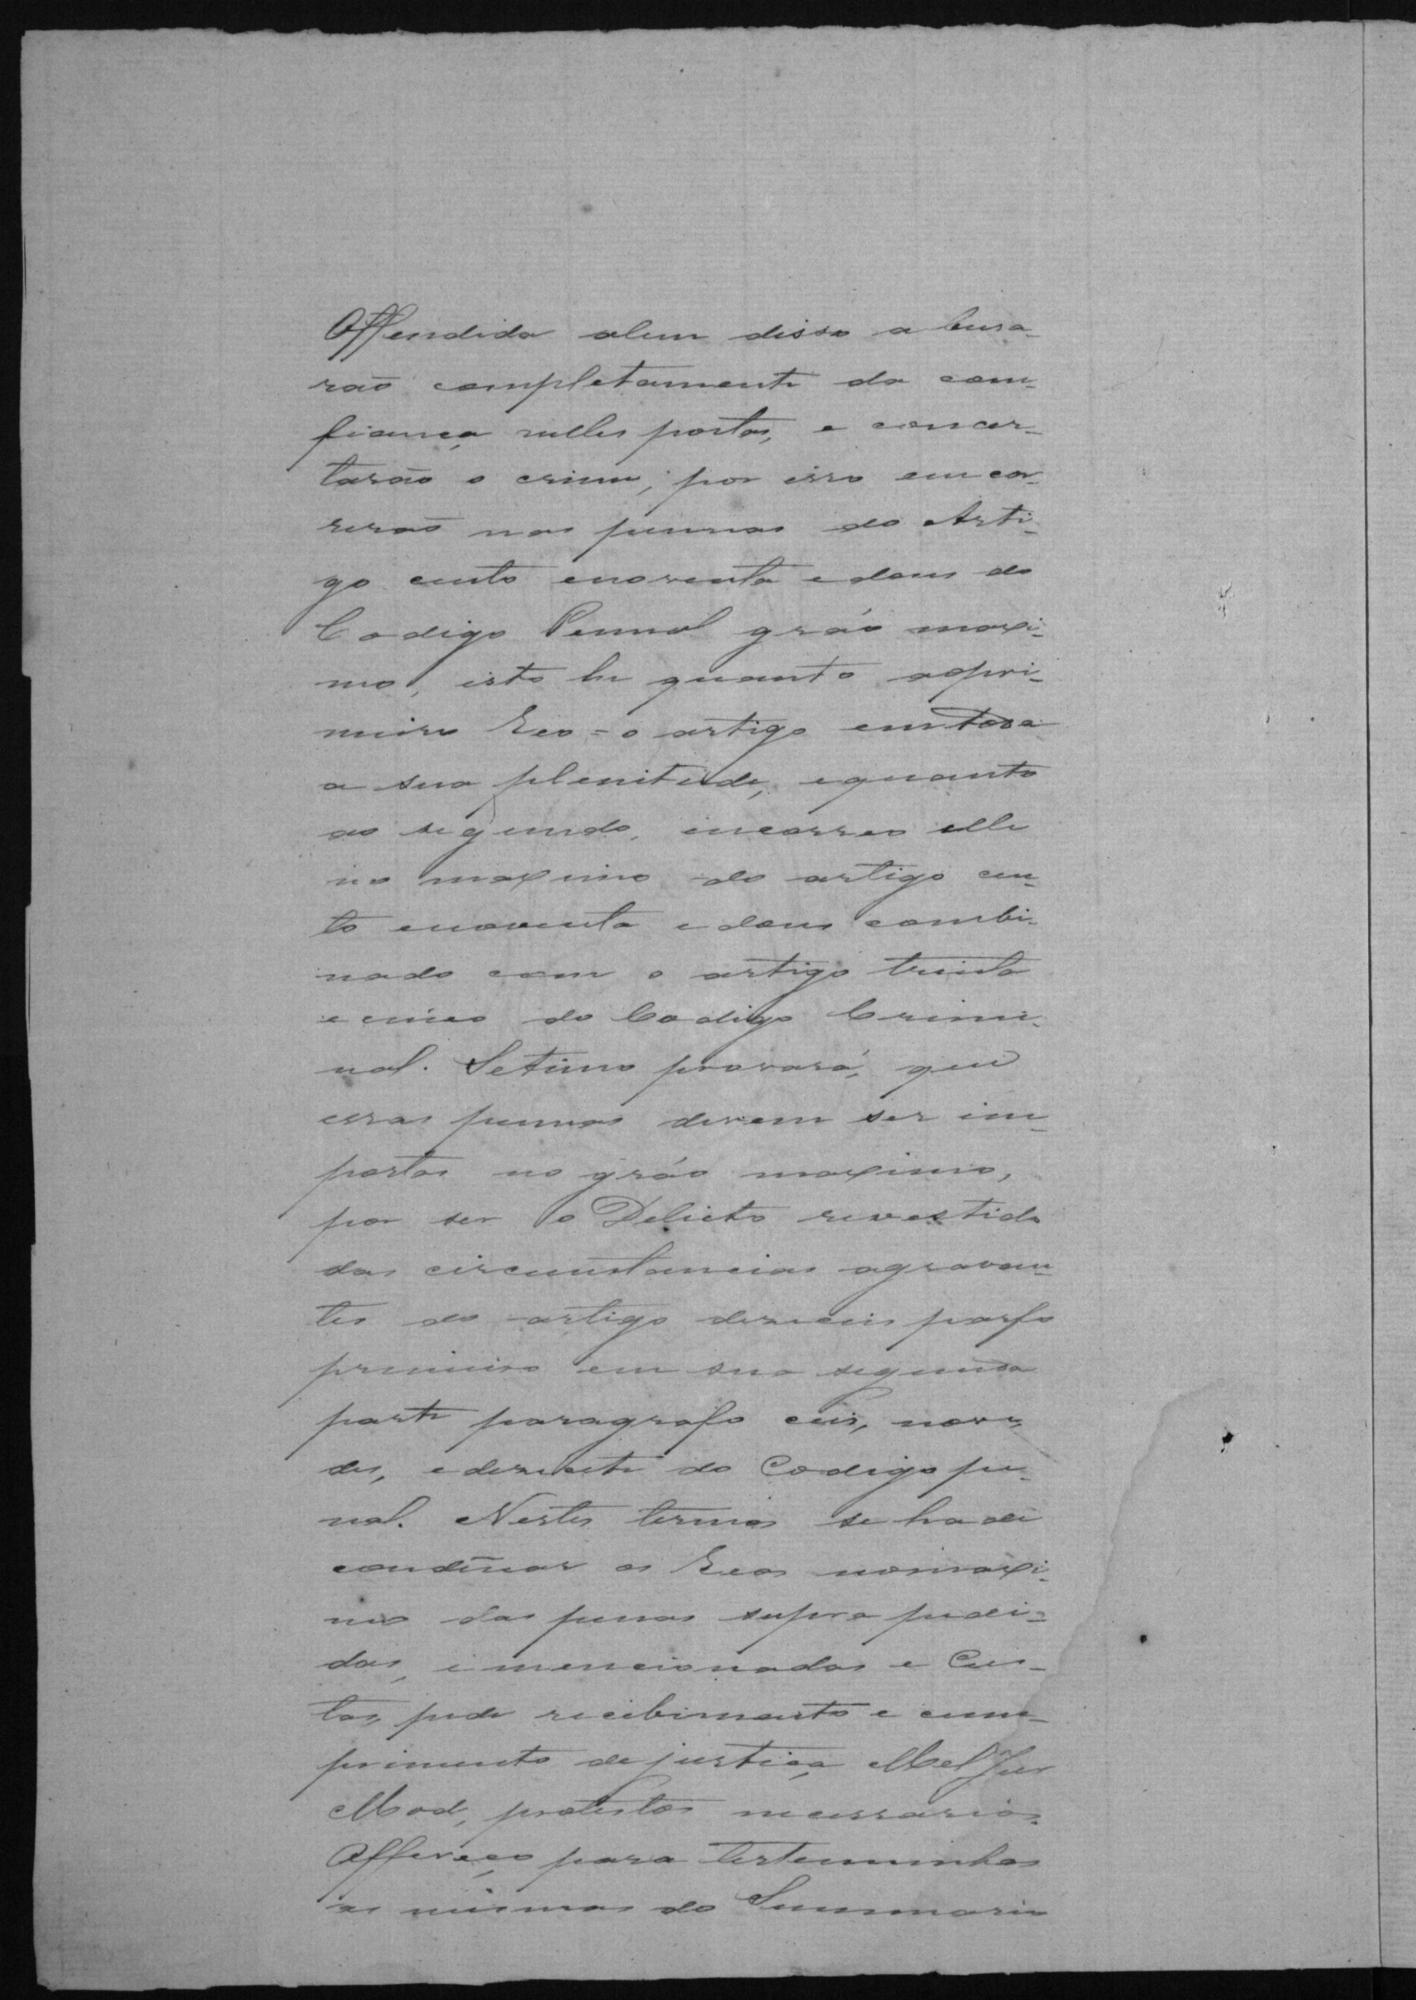 Offendida alem disso a buza-
rão completamente da com-
fiança nelles postas, e concer-
tarão o crime; por isso encor-
rerão nas pennas do Arti-
go cento enoventa e dous do
Codigo Pennal gráo maxi-
mo, isto he quanto aopri-
meiro Reo = o artigo em toda
a sua plenitude, equanto
ao segundo, incorreo elle
no maximo do artigo cen-
to enoventa e dous combi-
nado com o artigo trinta
e cinco do Codigo Crimi-
nal. Setimo provará, que
essas pennas devem ser im-
postas no gráo maximo,
por ser o Delicto revestido
das circunstancias agravan-
tes do artigo dezeceis parfo
primeiro em sua segunda
parte paragrafo ceis, nove,
des, e dezacete do Codigo pe-
nal. Nestes termos se ha de
condenar os Reos nomaxi-
mo das penas supra pedi-
das, e mencionadas e Cus-
tas, pede recibimento e cum-
primento de justiça Mel Jur
Mod, protestos necessarios.
Offereço para testeminhas
as mismas do Summario